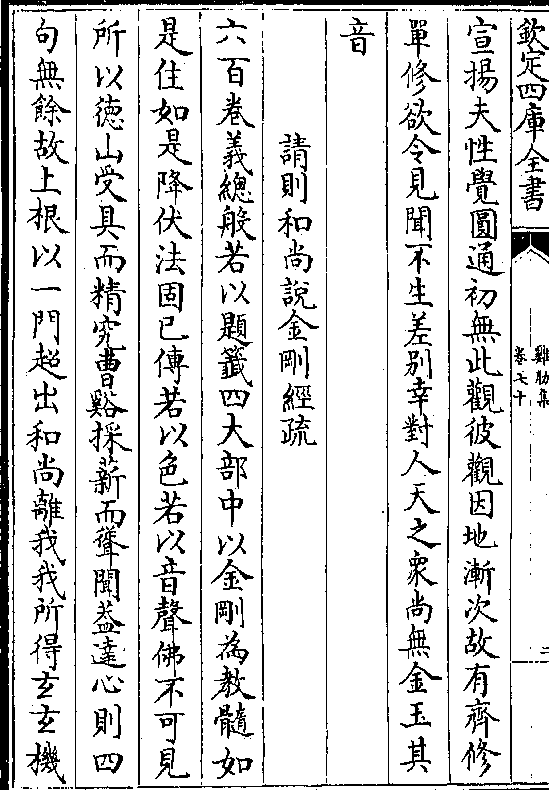 欽定四庫全書
雞肋集
卷七十
二
宣揚夫性覺圓通初無此觀彼觀因地漸次故有齊修
單修欲令見聞不生差別幸對人天之衆尚無金玉其
音
請則和尚說金剛經疏
六百卷義總般若以題籤四大部中以金剛為教髓如
是住如是降伏法固已傳若以色若以音聲佛不可見
所以德山受具而精究曹谿採薪而聳聞葢達心則四
句無餘故上根以一門超出和尚離我我所得玄玄機